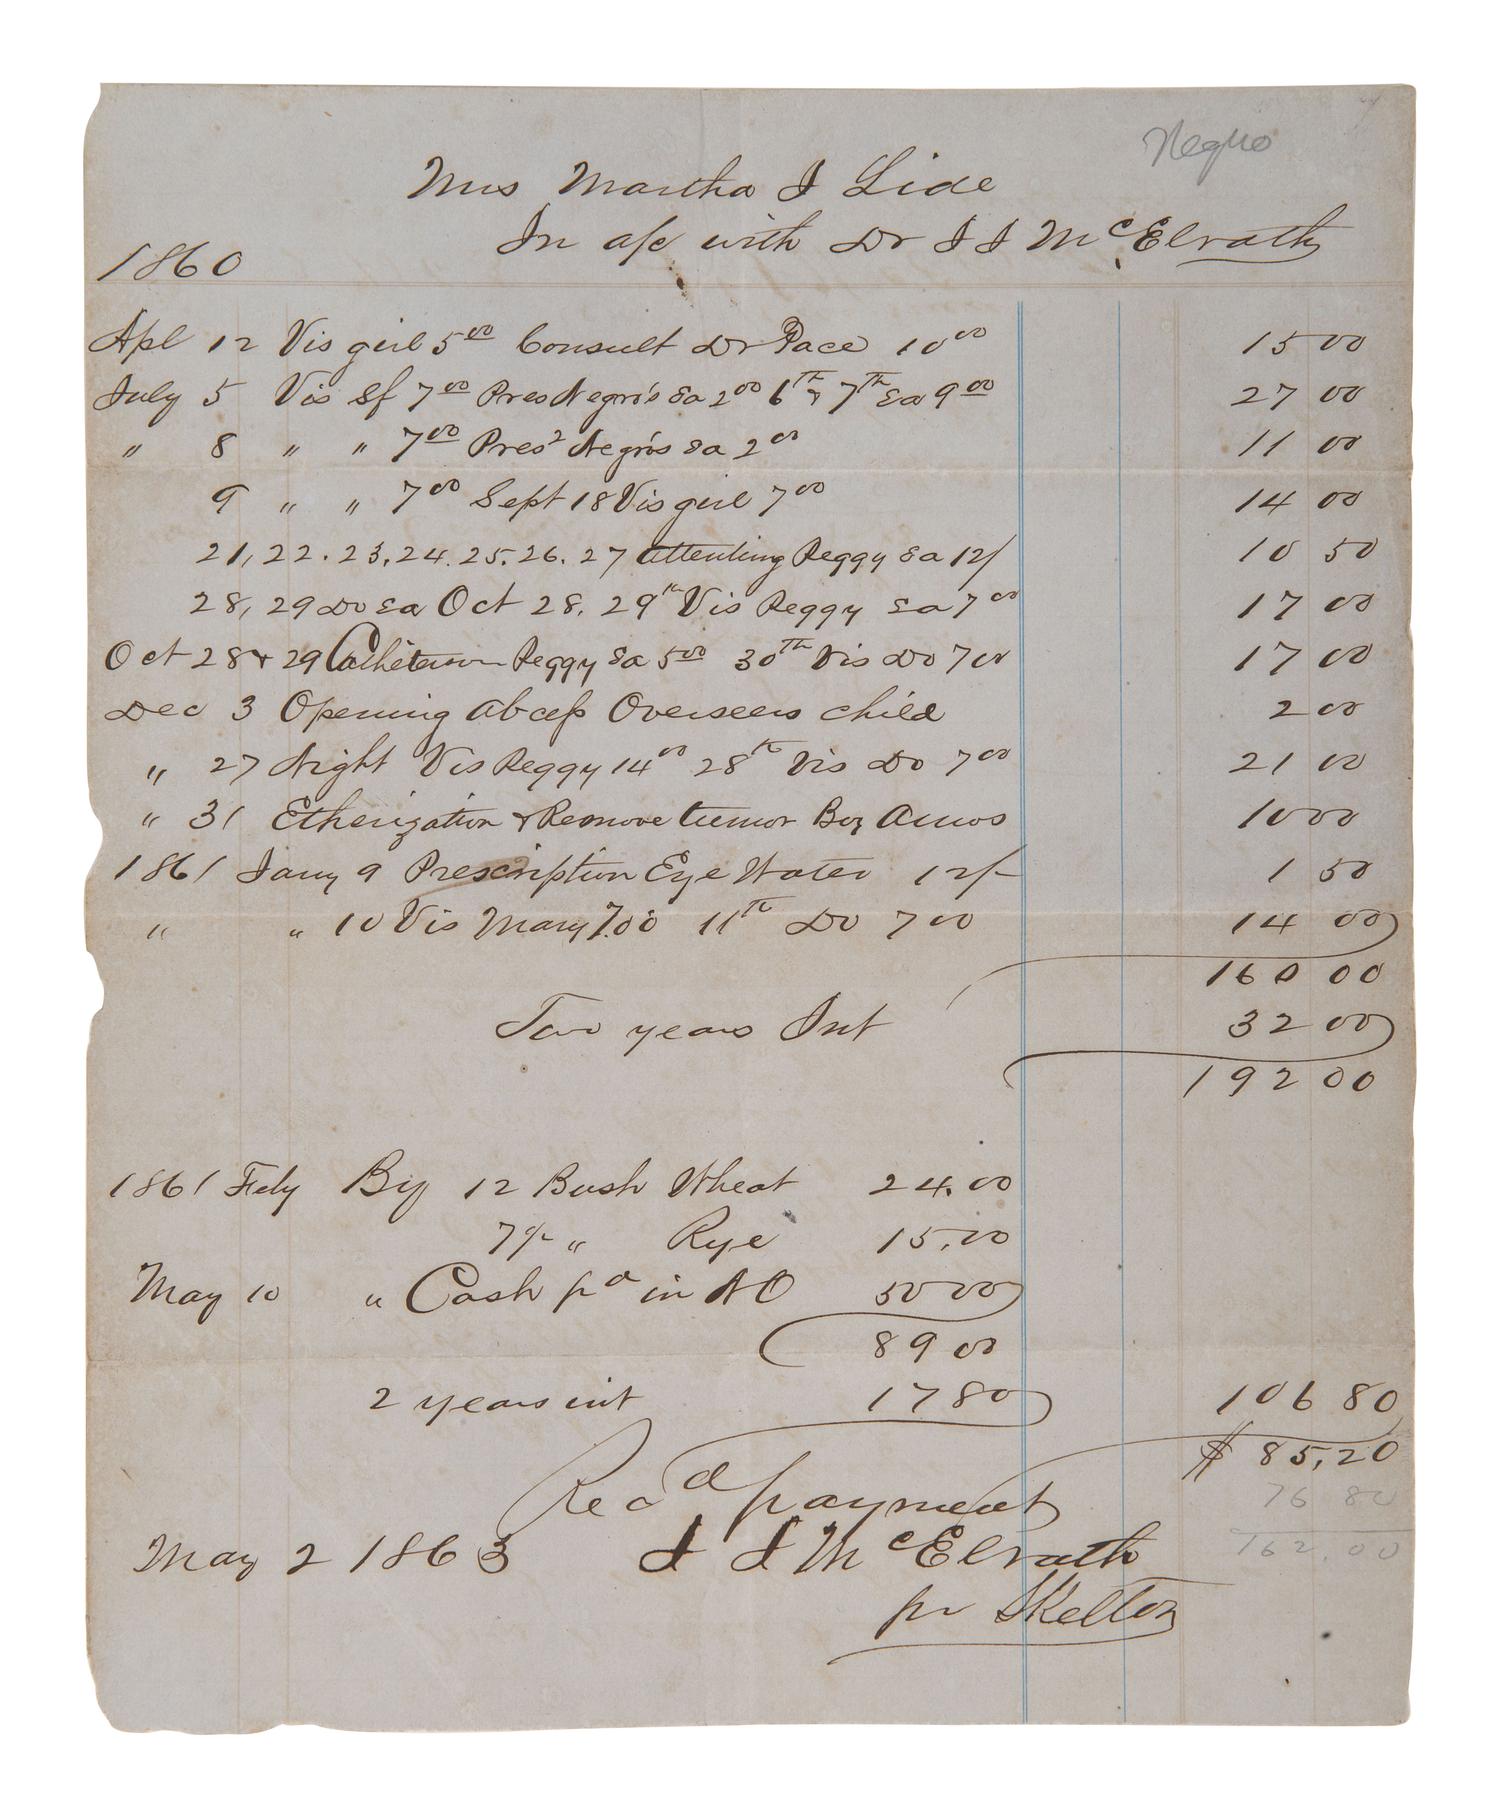 Negro
Mrs Martha J Lide
In a/c with Dr J J McElrath
1860
Apl 12 Vis girl 500 Consult Dr Pace 1000 15 00
July 5 Vis Sf 700 Pres Negro's Ea 200 6th & 7th Ea 900 27 00
" 8 " " 700 Pres2 Negro's Ea 200 11 00
9 " " 700 Sept 18 Vis girl 700 14 00
21, 22. 23, 24. 25. 26. 27 attending Peggy Ea 12/ 10 50
28, 29 Do Ea Oct 28. 29th Vis Peggy Ea 700 17 00
Oct 28 & 29 Peggy Ea 500 30th Vis Do 700 17 00
Dec 3 Opening Abcess Overseers child 2 00
" 27 Night Vis Peggy 1400 28th Vis Do 700 21 00
" 31 Etherization & Remove tumor Boy Amos 10 00
1861 Jany 9 Prescription Eye Water 12/- 1 50
" " 10 Vis Mary 7.00 11th Do 700 14 00
160 00
Two years Int 32 00
192 00
1861 Feby By 12 Bush Wheat 24.00
7½ " Rye 15.00
May 10 " Cash pd in NO 50 00
89 00
2 years int 17 80 106 80
$ 85,20
Recd payment 76 80
May 2 1863 J J McElrath 162.00
pr Skelton